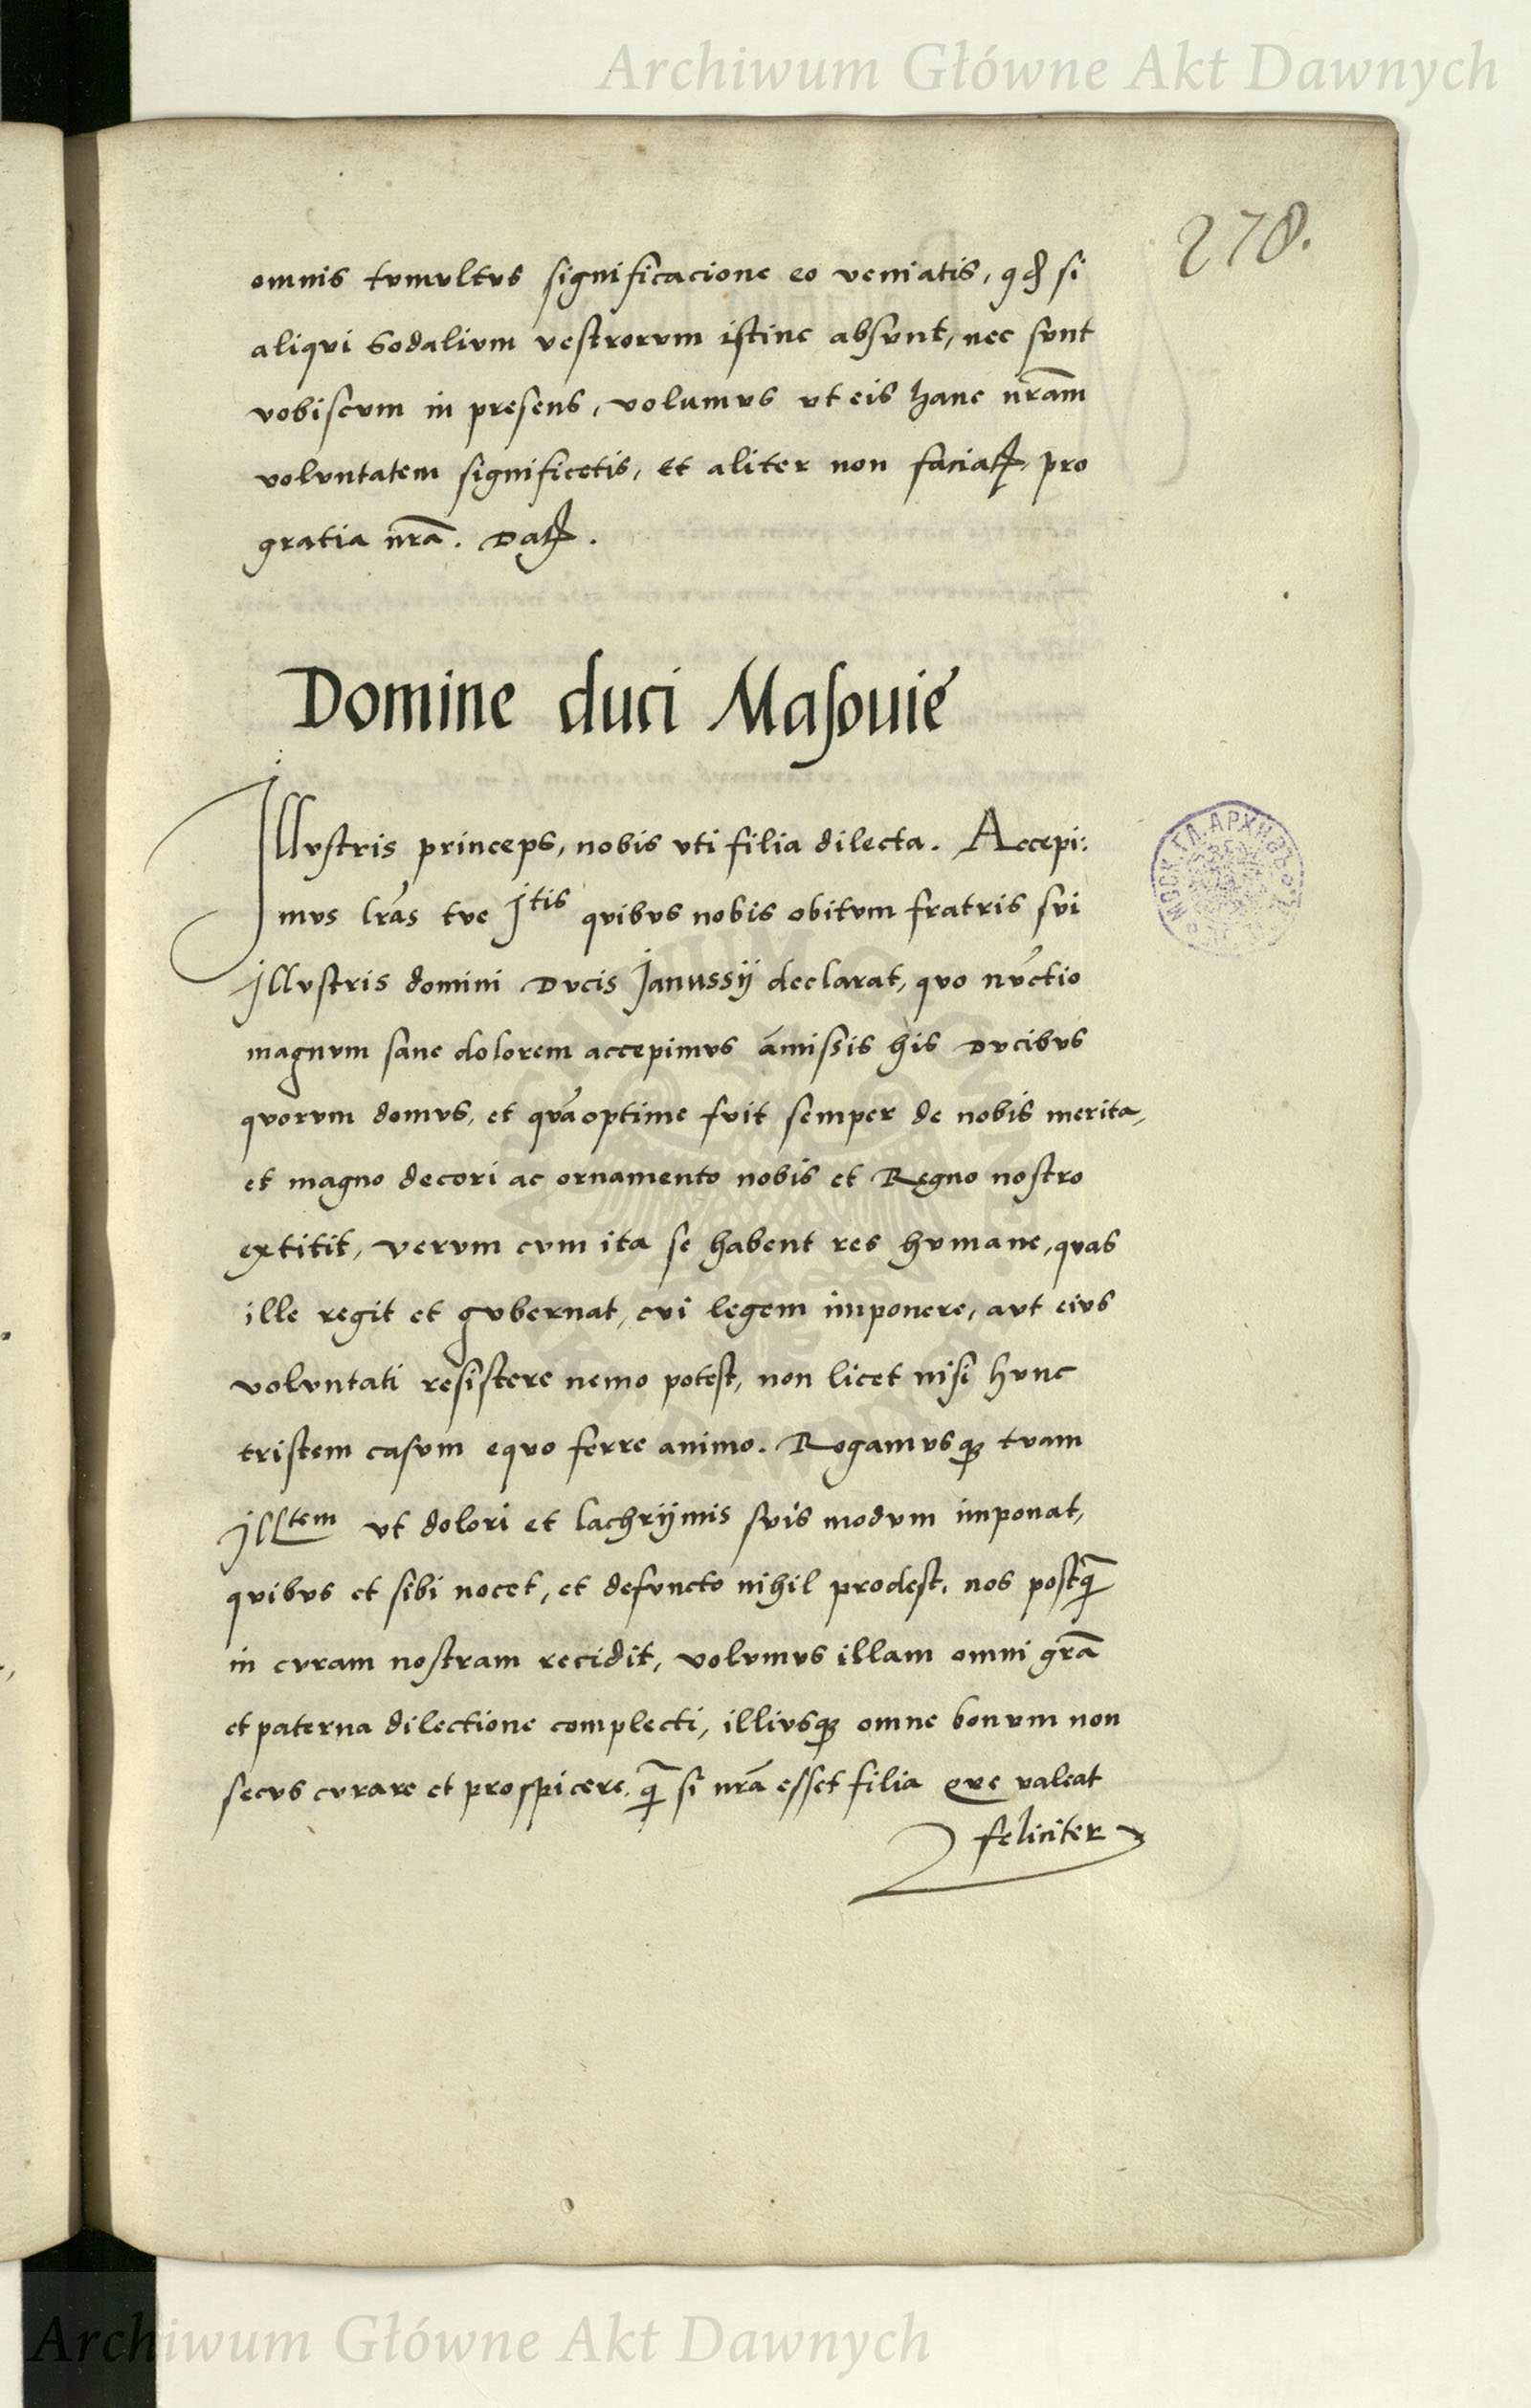 Archiwum Główne Akt Dawnych
278.
omnis tvmvltvs significacione eo veniatis, qđ si
aliqvi Sodalivm vestrorvm istinc absvnt, nec svnt
vobiscvm in presens, volumvs vt eis hanc nr̃am
volvntatem significetis, et aliter non faciatꝭ pro
gratia nr̃a. Datꝭ.
Domine duci Masouie
Illvstris princeps, nobis vti filia dilecta. Accepi:
mvs lr̃as tve Itis qvibvs nobis obitvm fratris svi
illvstris domini Dvcis Janussij declarat, qvo nv̄ctio
magnvm sane dolorem accepimvs āmissis his Dvcibvs
qvorvm domvs, et qvā optime fvit semper de nobis merita,
et magno decori ac ornamento nobis et Regno nostro
extitit, vervm cvm ita se habent res hvmane, qvas
ille regit et gvbernat, cvi legem imponere, avt eivs
volvntati resistere nemo potest, non licet nisi hvnc
tristem casvm eqvo ferre animo. Rogamvsqꝫ tvam
Illtem vt dolori et lachrijmis svis modvm imponat,
qvibvs et sibi nocet, et defvncto nihil prodest, nos postq̃
in cvram nostram recidit, volvmvs illam omni gr̃a
et paterna dilectione complecti, illivsqꝫ omne bonvm non
secvs cvrare et prospicere, q̃ si nr̃a esset filia qve valeat
feliciter
МОСК. ГЛ. АРХИВЪ
Archiwum Główne Akt Dawnych